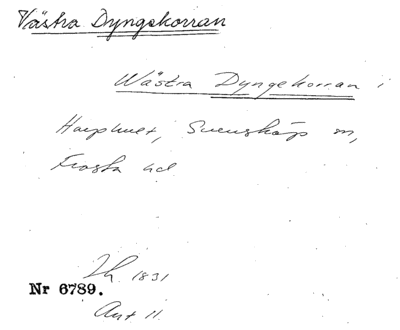 Västra Dyngekorran
Wästra Dyngekorran i
Harphult, Svensköp sn,
Frosta hd
1831
Nr 6789.
Ant 11.